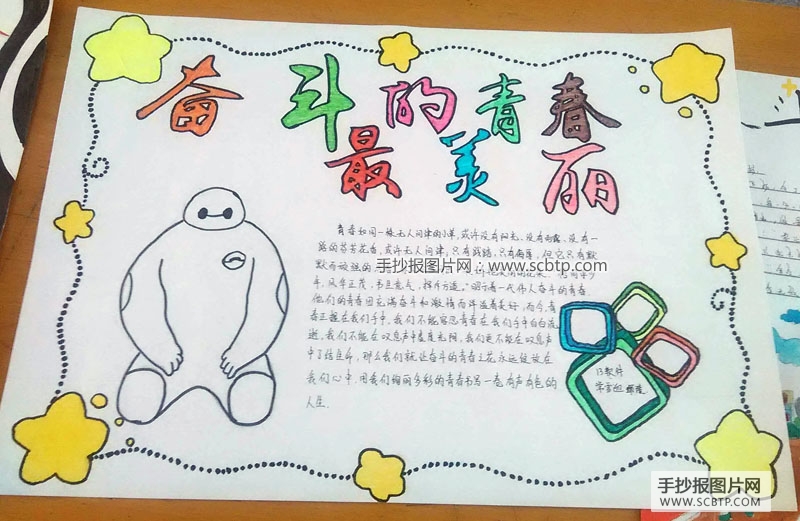 奋斗的青春
最美丽
青春如同一株无人问津的小草,或许没有阳光、没有雨露、没有一
路的芬芳花香,或许无人问津,只有践踏,只有雨落,但它只有默
默而顽强的
手抄报图片网:www.scbtp.com
年,风华正茂,书生意气,挥斥方遒。"昭示着一代伟人奋斗的青春
他们的青春因充满奋斗和激情而洋溢美好,而今,青
春正握在我们手中,我们不能容忍青春在我们手中白白流
逝,我们不能在叹息声中虚度光阴,我们更不能在叹息声
中了结生命,那么我们就让奋斗的青春之花永远绽放在
我们心中,用我们绚丽多彩的青春书写一卷有声有色的
人生.
13软件
手抄报图片网
SCBTP.COM